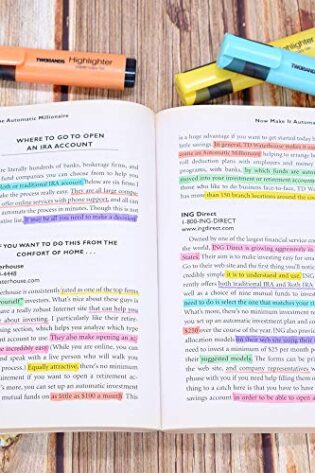 TWOHANDS Highlighter
Highlighter
he Automatic Millionaire
WHERE TO GO TO OPEN
AN IRA ACCOUNT
are literally hundreds of banks, brokerage firms, and
fund companies you can choose from to help you
oth or traditional IRA account. Below are six firms I
make the process really easy. They are all large compa-
offer online services with phone support, and all can
automate the process in minutes. Though this is not
ative list, it may be all you need to make a decision
F YOU WANT TO DO THIS FROM THE
COMFORT OF HOME . . .
erhouse
-4448
aterhouse.com
erhouse is consistently rated as one of the top firms
yourself" investors. What's nice about these guys is
have a really robust Internet site that can help you
about investing. I particularly like their retire-
ning section, which helps you analyze which type
ent account to use. They also make opening an ac-
e incredibly easy! (While you are online, you can
and speak with a live person who will walk you
process.) Equally attractive, there's no minimum
irement if you want to open a retirement ac-
t's more, you can set up an automatic investment
mutual funds on as little as $100 a month. This
Now Make It Automa
is a huge advantage if you want to get started today b
little savings. In general, TD Waterhouse makes it ea
come an Automatic Millionaire, helping to arrange b
roll deduction plans with employers and money
programs, with banks, by which funds are automat
moved into your investment or retirement account
those who like to do business face-to-face, TD Wate
has more than 150 branch locations around the cou
ING Direct
1-800-ING-DIRECT
www.ingdirect.com
Owned by one of the largest financial service com
the world, ING Direct is growing aggressively in
States. Their aim is to make investing easy for smal
Go to their web site and the first thing you'll notice
credibly simple it is to understand and use. ING
rently offers both traditional IRA and Roth IRA
well as a choice of nine mutual funds to invest
need to do is select the one that matches your ti
What's more, there's no minimum investment re
you set up an automatic investment plan and co
$250 over the course of the year. ING also provi
allocation models on their web site using their
need to invest a minimum of $25 per month pe
their suggested models. The forms can be prin
the web site, and company representatives w
phone with you if you need help filling them
thing to call to a chart here is that ING has so
savings account in order to be able to open a